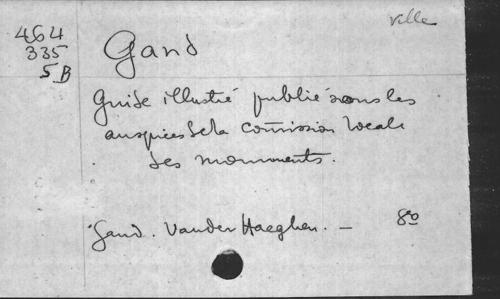 ville
464
335
5 B
Gand
Guide illustré publié sous les
auspices de la Comission locale
des monuments.
Gand. Vander Haeghen. — 8°